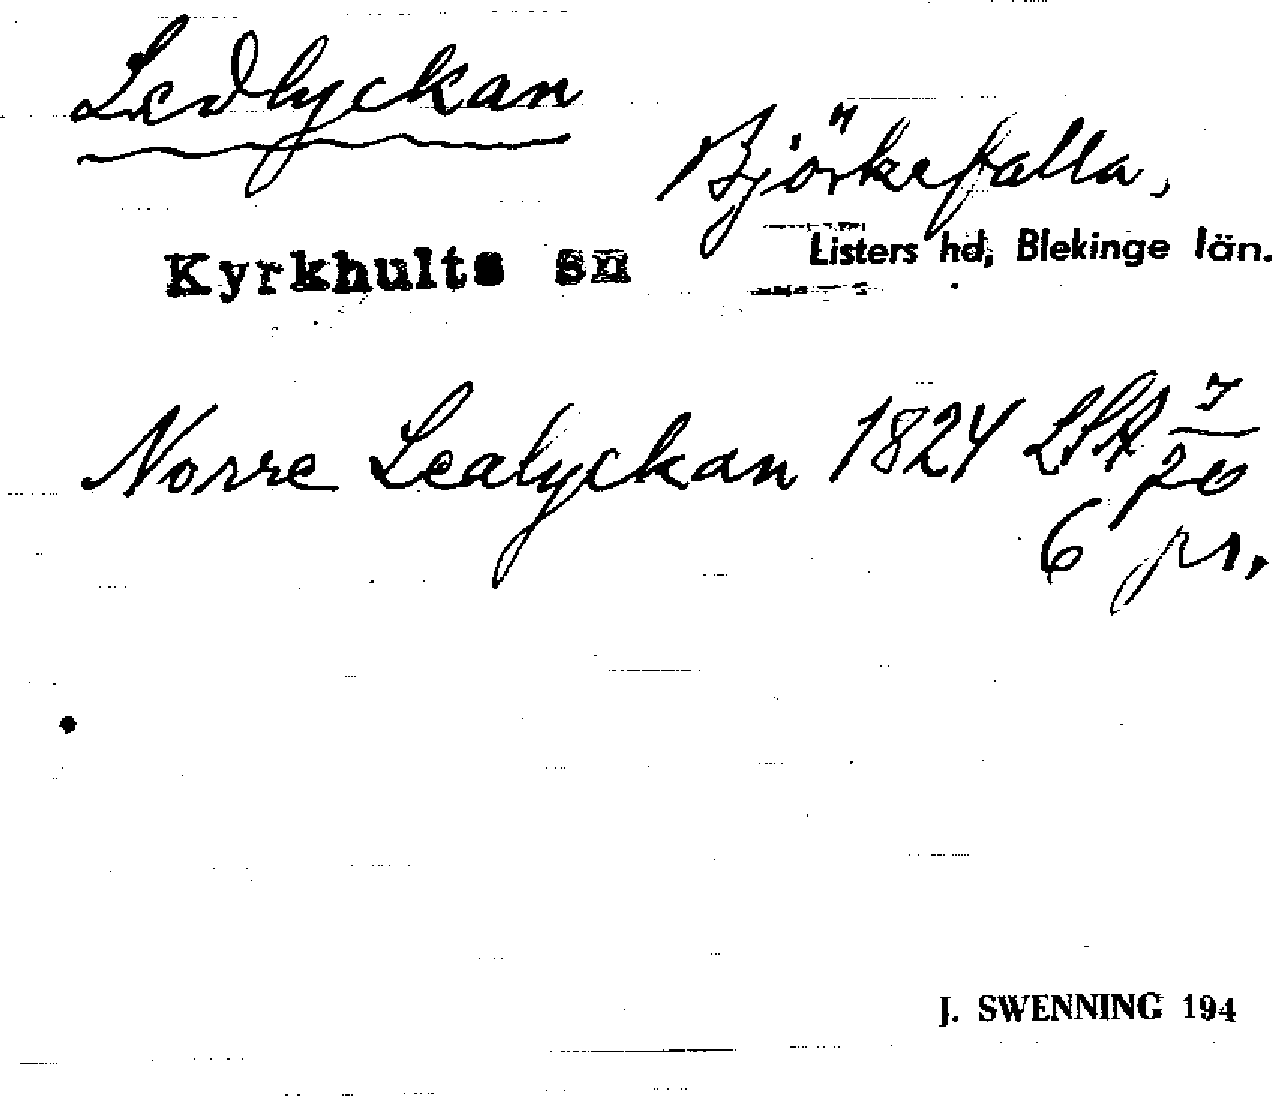 Ledlyckan
Björkefalla,
Kyrkhults sn
Listers hd, Blekinge län.
Norre Lealyckan 1824 LSA 7/20
6 pr.
J. SWENNING 194